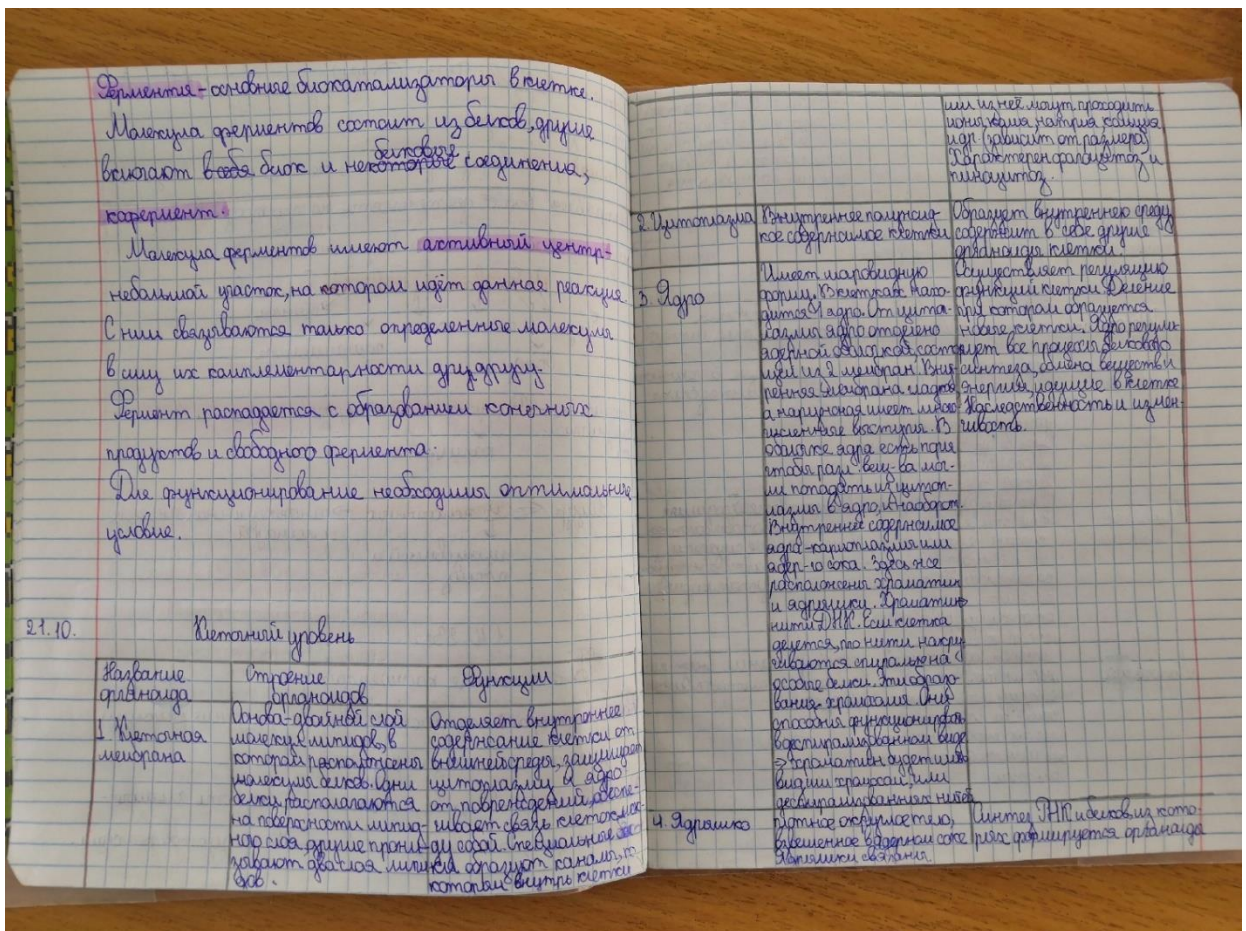 Ферменты - основные биокатализаторы в клетке.
Молекула ферментов состоит из белков, другие
белковые
включают в себя биок и некоторые соединения,
кофермент.
Молекула ферментов имеют активный центр-
небольшой участок, на котором идёт данная реакция
С ним связываются только определенные молекулы
в силу их комплементарности друг другу.
Фермент распадается с образованием конечных
продуктов и свободного фермента.
Для функционирование необходимы оптимальные
условие.
21.10.
Клеточный уровень
Название органоида
Строение органоидов
Функции
1. Клеточная мембрана
Основа-двойной слой
молекул липидов, в
котором расположены
молекулы белков. Одни
белки располагаются
на поверхности липид-
ного слоя другие прони-
зывают два слоя липи-
дов.
Отделяет внутреннее
содержание клетки от
внешней среды, защищает
цитоплазму и ядро
от повреждений, обеспе-
чивает связь клеток меж-
ду собой. Специальные
образуют каналы, п
которым внутрь клетки
или из неё могут проходить
ионы калия, натрия, кальция
и др. (зависит от размера)
Характерен фагоцитоз и
пиноцитоз.
2. Цитоплазма
Внутреннее полужид-
кое содержимое клетки
Образует внутреннею среду
содержит в себе другие
органоиды клетки.
3. Ядро
Имеет шаровидную
форму. В клетках нахо-
дится 1 ядро. От цито-
плазмы ядро отделено
ядерной оболочкой, состо-
щей из 2 мембран. Внут-
ренняя мембрана гладкая
а наружная имеет много
численные выступы. В
оболочке ядра есть поры
чтобы разл. вещ-ва мог-
ли попадать из цитоп-
лазмы в ядро, и наоборот.
Внутреннее содержимое
ядра-кариоплазма или
ядер-го сока. Здесь же
расположены хроматин
и ядрышки. Хроматин
нити ДНК. Если клетка
делется, то нити накру
чиваются спиралью на
особые белки. Эти образо-
вания-хромосомы. Они
способны функционировать
в деспирализованном виде
=> хроматин будет иметь
вид или хромосом, или
деспирализованных нитей
Осуществляет регуляцию
функций клетки. Деление
при котором образуется
новые клетки. Ядро регули-
рует все процессы белкового
синтеза, обмена веществ и
энергии, идущие в клетке
Наследственность и измен-
чивость.
4. Ядрышко
Плотное округлое тело,
взвешенное в ядерном соке
Ядрышки связаны
Синтез РНК и белков, из кото-
рых формируется органоиды